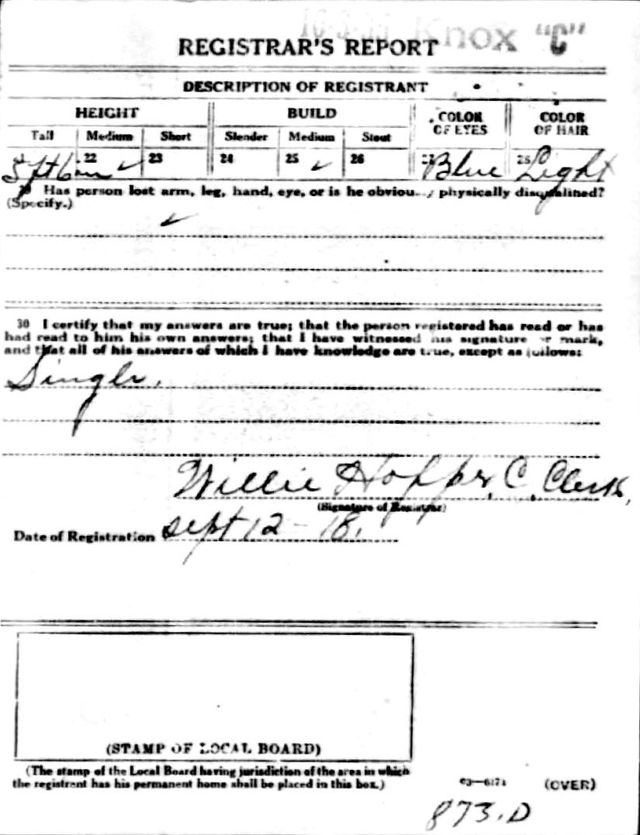 Knox "C"
REGISTRAR'S REPORT
DESCRIPTION OF REGISTRANT
HEIGHT BUILD COLOR OF EYES COLOR OF HAIR
Tall Medium Short Slender Medium Stout
5 ft 6 in 22 ✓ 23 24 25 ✓ 26 27 Blue 28 Light
Has person lost arm, leg, hand, eye, or is he obviously physically disqualified?
(Specify.)
✓
30 I certify that my answers are true; that the person registered has read or has
had read to him his own answers; that I have witnessed his signature or mark,
and that all of his answers of which I have knowledge are true, except as follows:
Single.
Willie Hopper, C. Clerk,
(Signature of Registrar)
Date of Registration Sept 12 - 18.
(STAMP OF LOCAL BOARD)
(The stamp of the Local Board having jurisdiction of the area in which
the registrant has his permanent home shall be placed in this box.)
03—6171 (OVER)
873.D